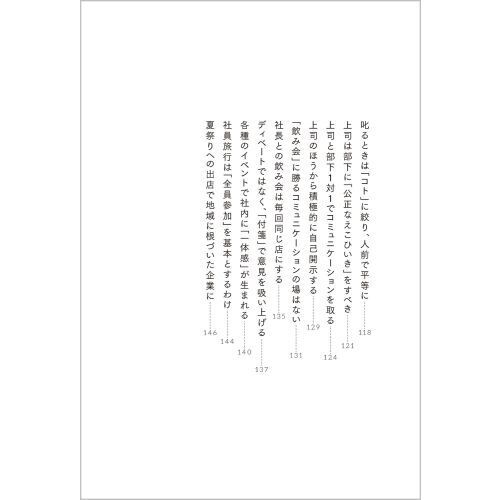 叱るときは「コト」に絞り、人前で平等に……118
上司は部下に「公正なえこひいき」をすべき……121
上司と部下1対1でコミュニケーションを取る……124
上司のほうから積極的に自己開示する……129
「飲み会」に勝るコミュニケーションの場はない……131
社長との飲み会は毎回同じ店にする……135
ディベートではなく、「付箋」で意見を吸い上げる……137
各種のイベントで社内に「一体感」が生まれる……140
社員旅行は「全員参加」を基本とするわけ……144
夏祭りへの出店で地域に根づいた企業に……146